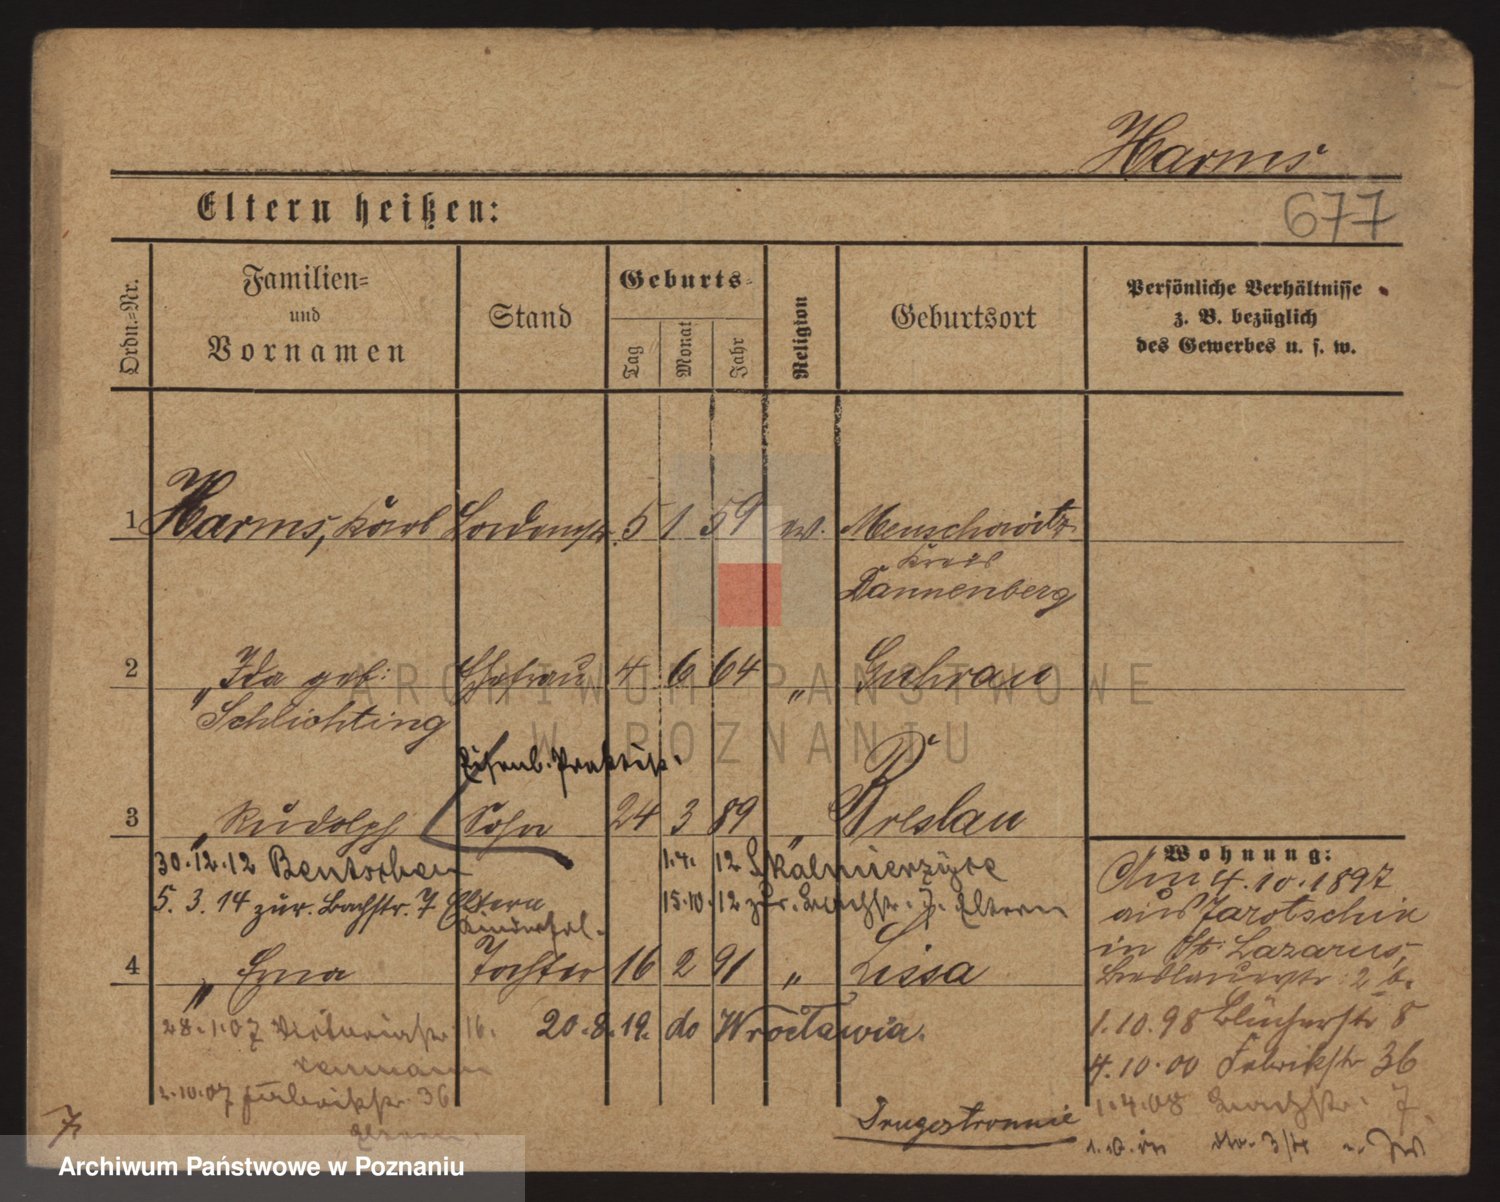 Harms
Eltern heißen:
677
Ordn.=Nr.
Familien=
und
Vornamen
Stand
Geburts=
Tag
Monat
Jahr
Religion
Geburtsort
Persönliche Verhältnisse
z. B. bezüglich
des Gewerbes u. s. w.
1 Harms, Karl 5 1 59 ev.
Kreis
Dannenberg
2 " Ida geb: Ehefrau 4 6 64 " Guhrau
Schlichting
Eisenb. Praktik.
3 " Rudolph Sohn 24 3 89 " Breslau
30.12.12 Bentschen 1.4. 12 Skalmierzyce
5. 3. 14 zur. Bachstr. 7 Eltern 15.10.12 zur. Bachstr. 7. Eltern
4 " Erna Tochter 16 2 91 " Lissa
28.1.07 Victoriastr. 16. 20.8.19. do Wrocławia.
1.10.07 Fabrikstr. 36
Eltern
Wohnung:
Am 4.10.1897
aus Jarotschin
in St. Lazarus,
1.10.98 Blücherstr 8
4.10.00 Fabrikstr 36
1.4.08 Bachstr. 7
Drugostronnie
7.
ARCHIWUM PAŃSTWOWE
W POZNANIU
Archiwum Państwowe w Poznaniu